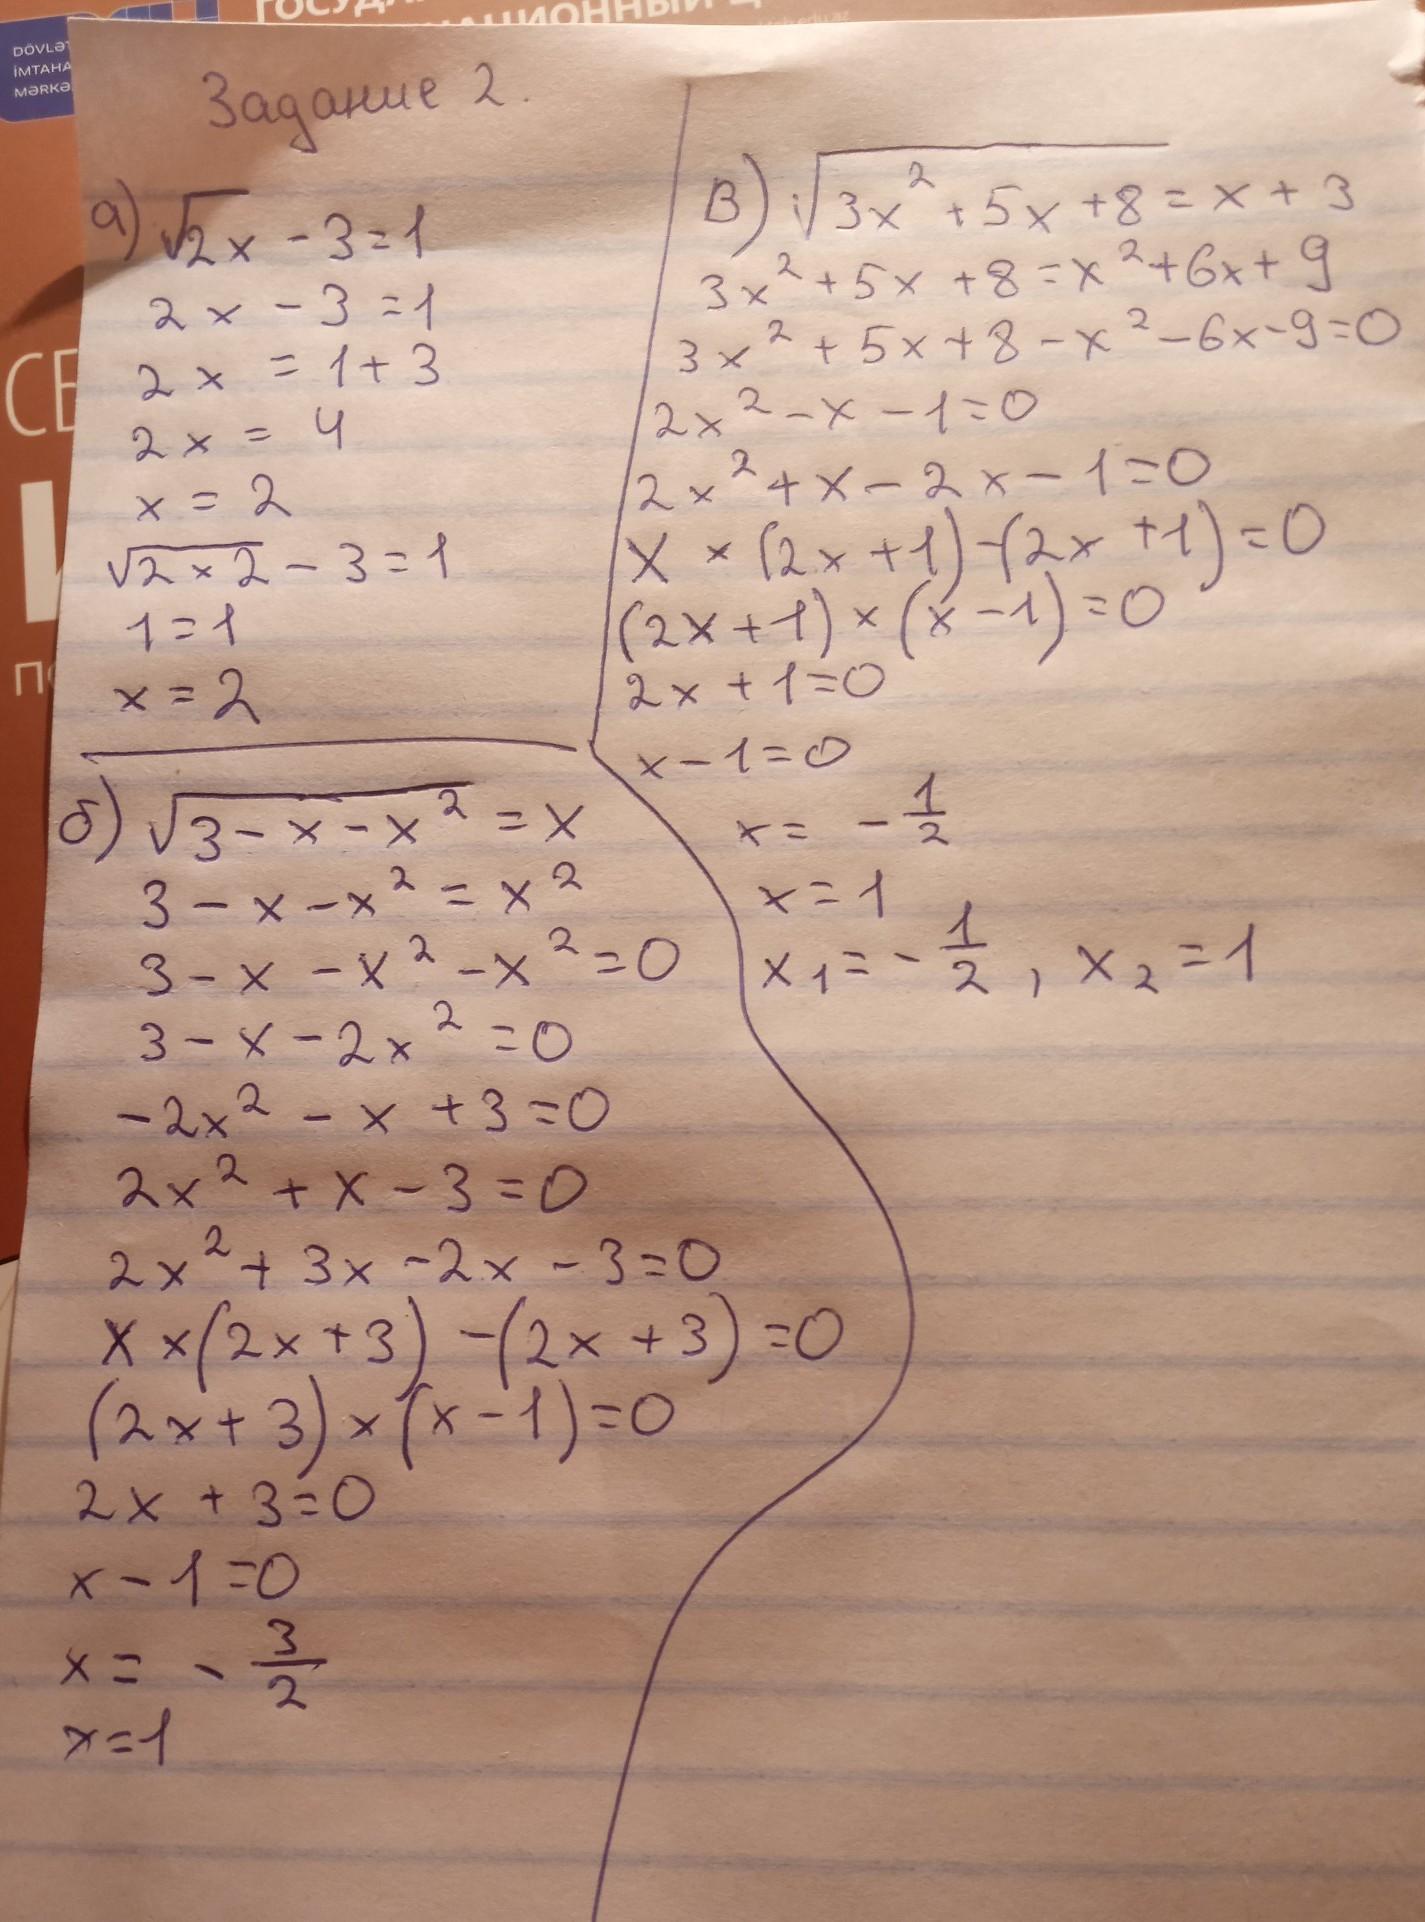 DÖVLƏT
İMTAHA
MƏRKƏ
Задание 2.
а) √2x - 3 = 1
2x - 3 = 1
2x = 1 + 3
2x = 4
x = 2
√2×2 - 3 = 1
1 = 1
x = 2
б) √3 - x - x² = x
3 - x - x² = x²
3 - x - x² - x² = 0
3 - x - 2x² = 0
-2x² - x + 3 = 0
2x² + x - 3 = 0
2x² + 3x - 2x - 3 = 0
x × (2x + 3) - (2x + 3) = 0
(2x + 3) × (x - 1) = 0
2x + 3 = 0
x - 1 = 0
x = - 3/2
x = 1
в) √3x² + 5x + 8 = x + 3
3x² + 5x + 8 = x² + 6x + 9
3x² + 5x + 8 - x² - 6x - 9 = 0
2x² - x - 1 = 0
2x² + x - 2x - 1 = 0
x × (2x + 1) - (2x + 1) = 0
(2x + 1) × (x - 1) = 0
2x + 1 = 0
x - 1 = 0
x = - 1/2
x = 1
x₁ = - 1/2 , x₂ = 1